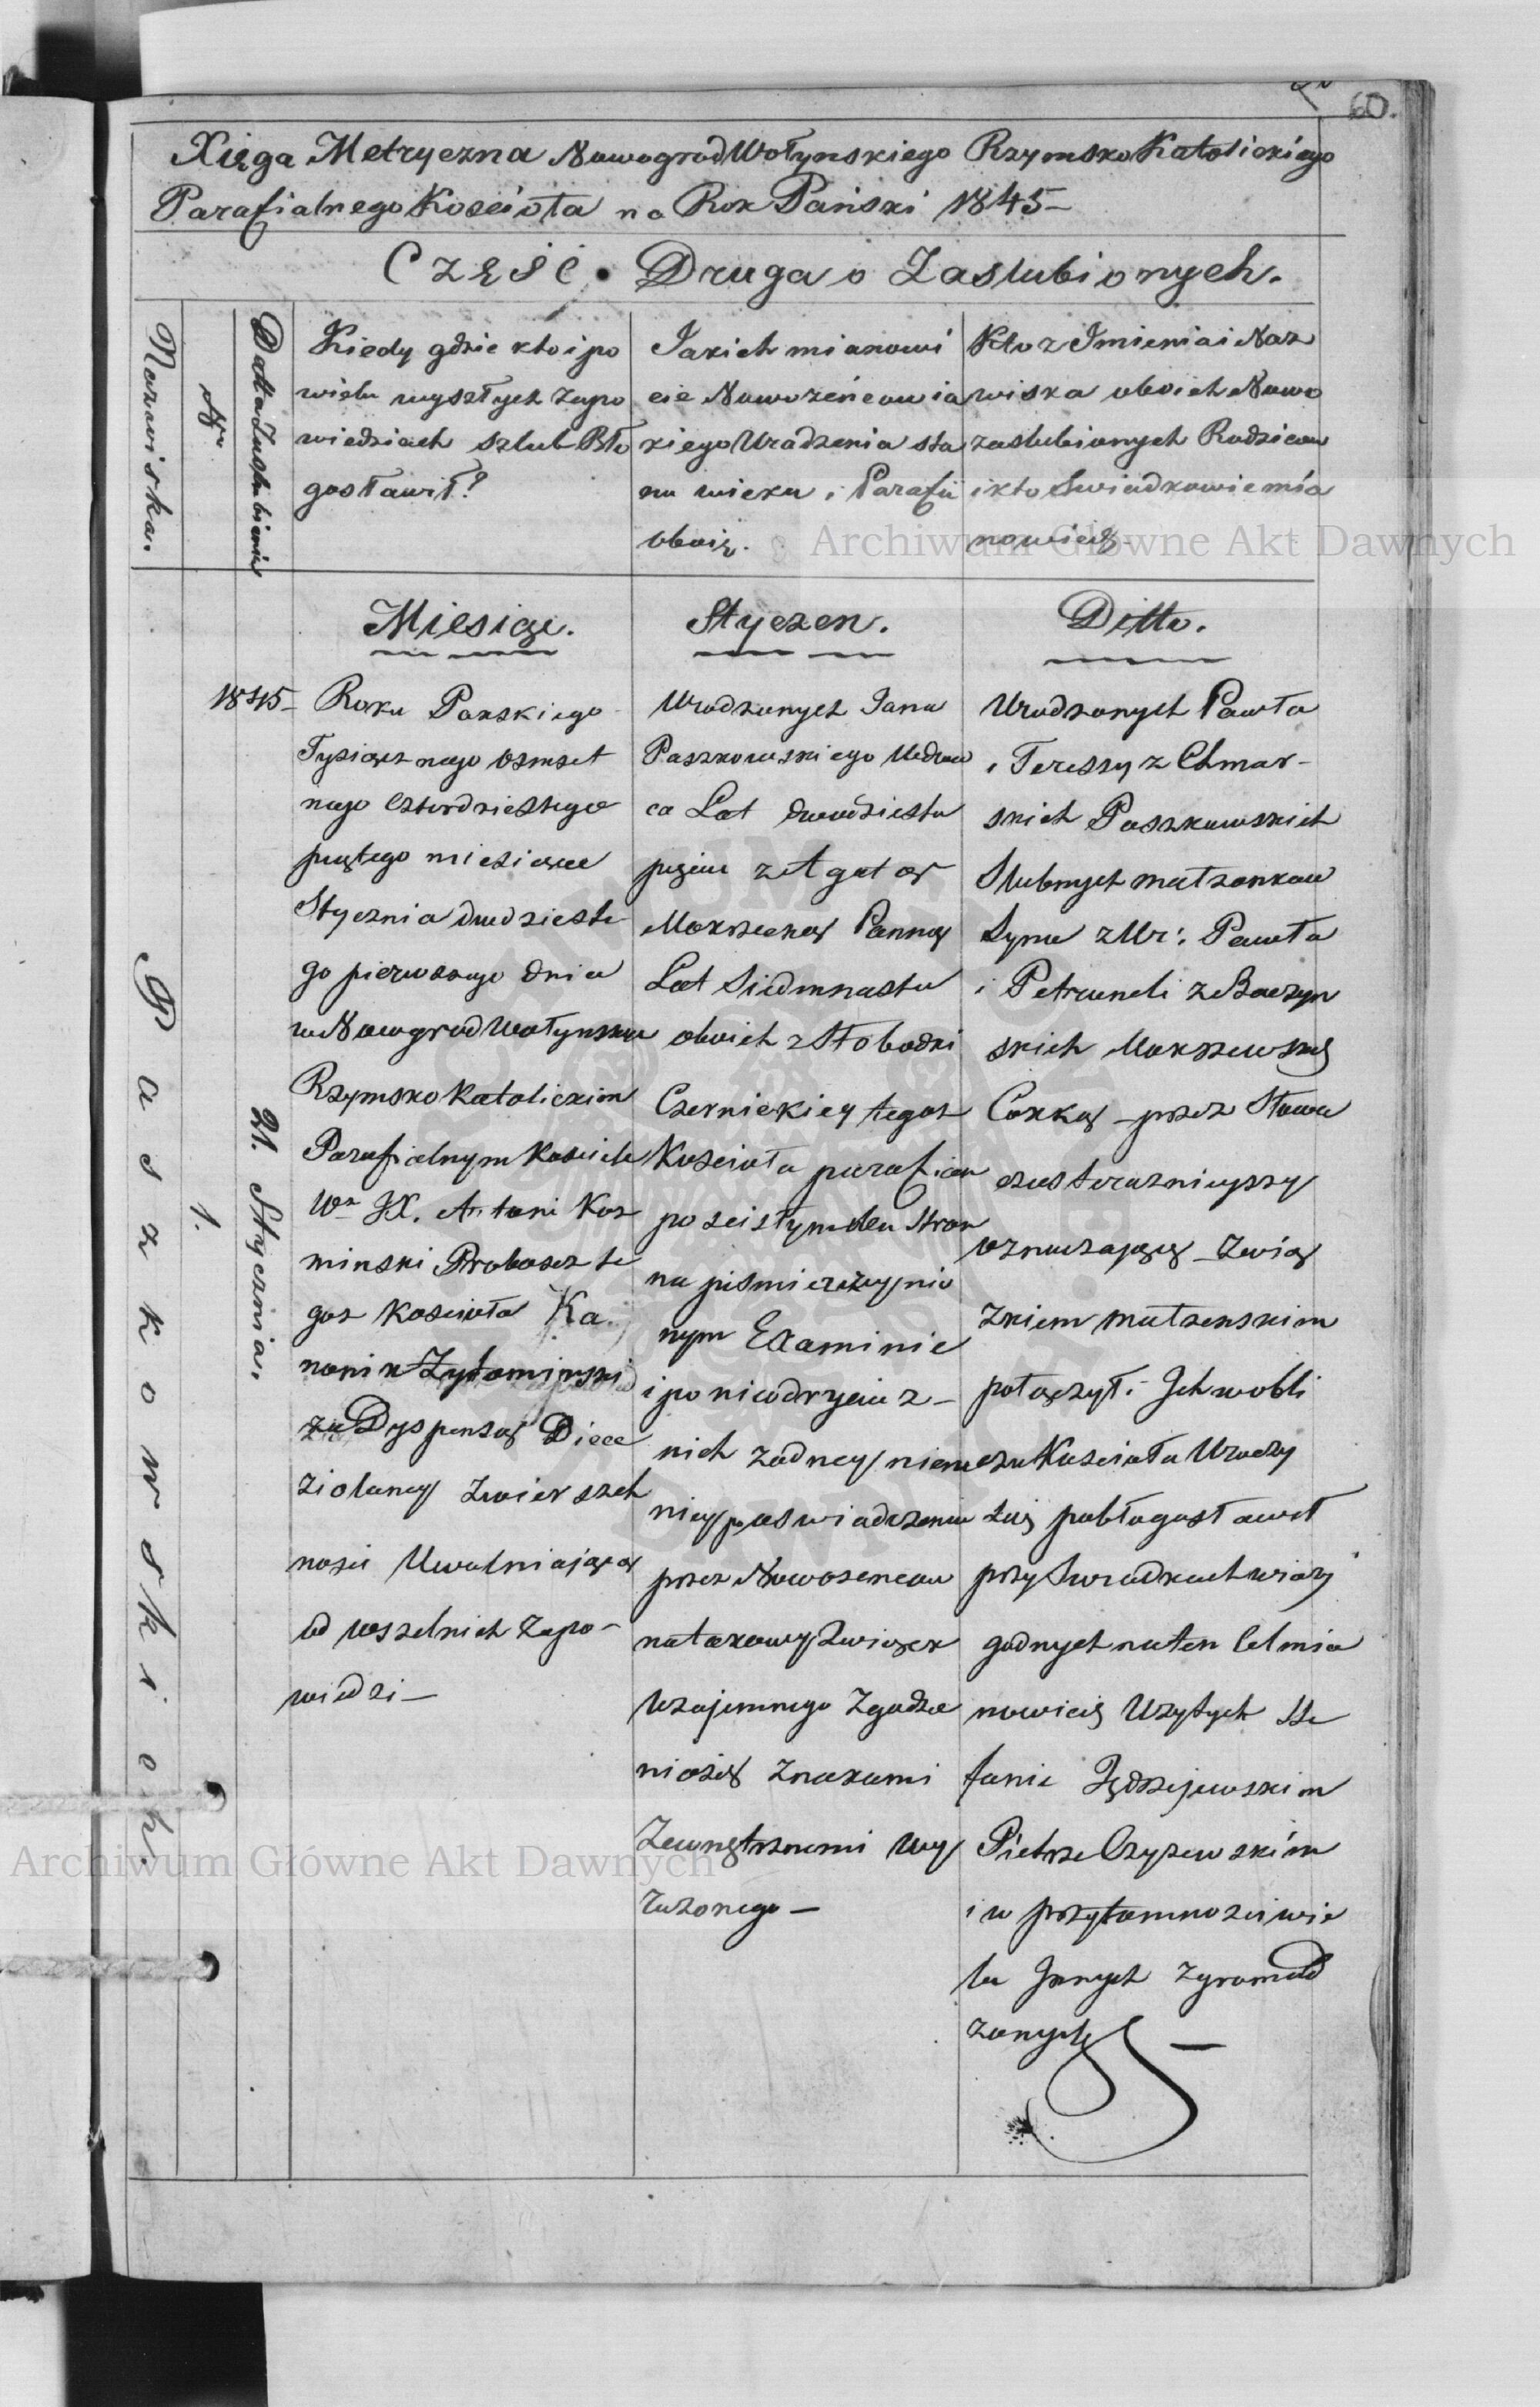 60.
Xięga Metryczna NowogrodWołynskiego RzymskoKatolickiego
Parafialnego Koscioła na Rok Pański 1845–
Część Druga o Zaslubionych.
Nazwiska.
Nr
Datta Zaslubienia
Kiedy gdzie kto i po
wielu wyszłych zapo
wiedziach szlub Bło
gosławił?
Jakich mianowi
cie Nowożeńcow ia
kiego Uradzenia sta
nu wieku i Parafii
oboię.
Kto z Imienia i Naz
wiska oboich Nowo
zaslubionych Rodzicow
i kto Swiadkowie mia
nowicię
Miesiąc.
Styczen.
Ditto.
Paszkowskich.
1.
21. Stycznia.
1845–
Roku Panskiego
Tysiącznego Osmset
nego Czterdziestego
piątego miesiąca
Stycznia dwudzieste
go pierwszego dnia
w NowogrodWołynskim
RzymskoKatolickim
Parafialnym Kosciele
Wn JX. Antoni Koz
minski Proboszcz te
goz Kosciola Ka
nonik Zytomirski
za Dyspensą Diece
zialney Zwierzch
nosci Uwalniaiącą
od wszelkich zapo–
wiedzi–
Urodzonych Jana
Paszkowskiego Wdow
ca Lat dwadziestu
pięciu z Agatą
Mokrzecką Panną
Lat Siedmnastu
oboich z Słobodki
Czernickiey tegoz
Kosciola parafian
po scisłym dla Stron
na pismie uczynio
nym Examinie
i po nieodkryciu z–
nich zadney niema
przez Nowozencow
natakowy Związek
Wzajemnego Zgadza
niasię Znakami
Zewnętrznemi Wy
razonego–
Urodzonych Pawła
i Teressy z Chmar–
skich Paszkowskich
Slubnych małzonkow
Syna z Ur: Pawła
i Petroneli z Baczyn
skich
Corką – przez Słowa
czas teraznieyszy
oznaczaiące – Zwią
zkiem małzenskim
połączył i Ich wobli
czu Kosciola Uroczy
scie pobłogosławił
przy Swiadkach wiary
godnych na ten Cel mia
nowicię Uzytych Ste
fanie Jędrzejewskim
Pietrze Czyzewskim
i w przytomnosci wie
lu Innych zgromad
zonych –
Archiwum Główne Akt Dawnych
Archiwum Główne Akt Dawnych